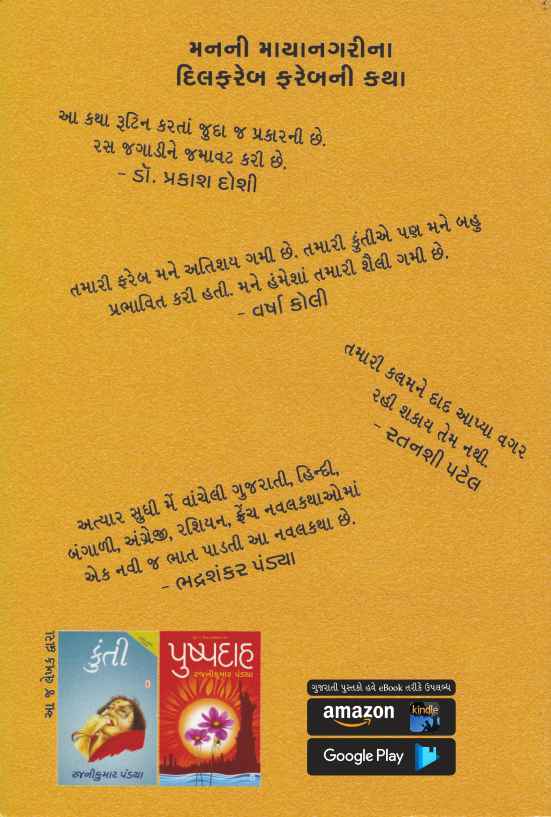 મનની માયાનગરીના
દિલફરેબ ફરેબની કથા
આ કથા રૂટિન કરતાં જુદા જ પ્રકારની છે.
રસ જગાડીને જમાવટ કરી છે.
- ડૉ. પ્રકાશ દોશી
તમારી ફરેબ મને અતિશય ગમી છે. તમારી કુંતીએ પણ મને બહુ
પ્રભાવિત કરી હતી. મને હંમેશાં તમારી શૈલી ગમી છે.
- વર્ષા કોલી
તમારી કલમને દાદ આપ્યા વગર
રહી શકાય તેમ નથી.
- રતનશી પટેલ
અત્યાર સુધી મેં વાંચેલી ગુજરાતી, હિન્દી,
બંગાળી, અંગ્રેજી, રશિયન, ફ્રેંચ નવલકથાઓમાં
એક નવી જ ભાત પાડતી આ નવલકથા છે.
- ભદ્રશંકર પંડ્યા
આ જ લેખક દ્વારા
કુંતી
રજનીકુમાર પંડ્યા
પુષ્પદાહ
રજનીકુમાર પંડ્યા
ગુજરાતી પુસ્તકો હવે eBook તરીકે ઉપલબ્ધ
amazon kindle
Google Play